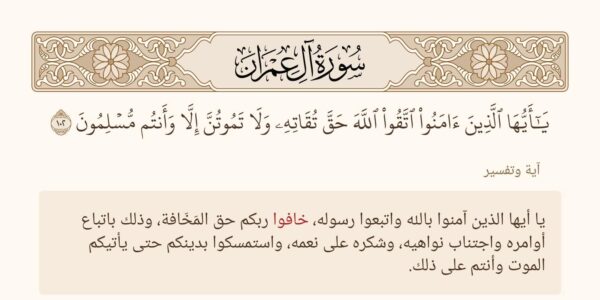 سُورَةُ آلِ عِمْرَان
يَـٰٓأَيُّهَا ٱلَّذِينَ ءَامَنُوا۟ ٱتَّقُوا۟ ٱللَّهَ حَقَّ تُقَاتِهِۦ وَلَا تَمُوتُنَّ إِلَّا وَأَنتُم مُّسْلِمُونَ ١٠٢
آية وتفسير
يا أيها الذين آمنوا بالله واتبعوا رسوله، خافوا ربكم حق المَخَافة، وذلك باتباع
أوامره واجتناب نواهيه، وشكره على نعمه، واستمسكوا بدينكم حتى يأتيكم
الموت وأنتم على ذلك.